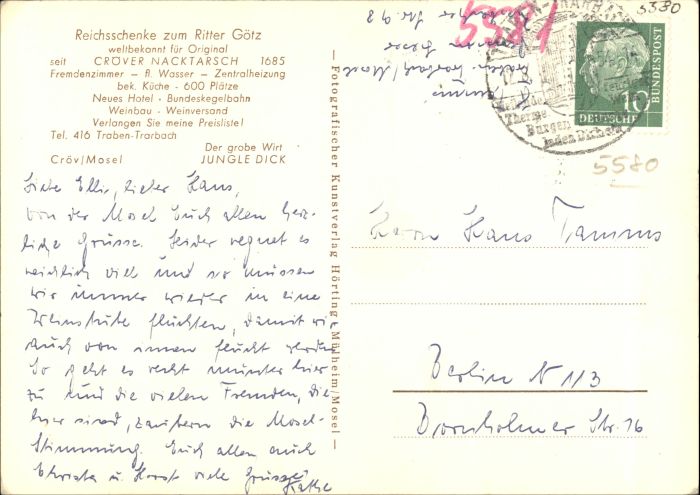 Reichsschenke zum Ritter Götz
weltbekannt für Original
seit CRÖVER NACKTARSCH 1685
Fremdenzimmer – fl. Wasser – Zentralheizung
bek. Küche - 600 Plätze
Neues Hotel - Bundeskegelbahn
Weinbau - Weinversand
Verlangen Sie meine Preisliste!
Tel. 416 Traben-Trarbach
Der grobe Wirt
Cröv/Mosel JUNGLE DICK
Liebe Elli, lieber Hans,
von der Mosel Euch allen herz-
liche Grüsse. Leider regnet es
reichlich viel und so müssen
wir immer wieder in eine
Weinstube flüchten, damit wir
auch von innen feucht werden.
So geht es recht munter hier
zu und die vielen Fremden, die
hier sind, zaubern die Mosel-
Stimmung. Euch allen auch
Christa u. Horst viele Grüsse
Käthe
— Fotografischer Kunstverlag Hörting - Mülheim/Mosel —
5581
5580
TRABEN-TRARBACH
Burgen
laden Dich ein
BUNDESPOST
10
DEUTSCHE
5580
Herrn Hans Tamms
Berlin N 113
Bornholmer Str. 16